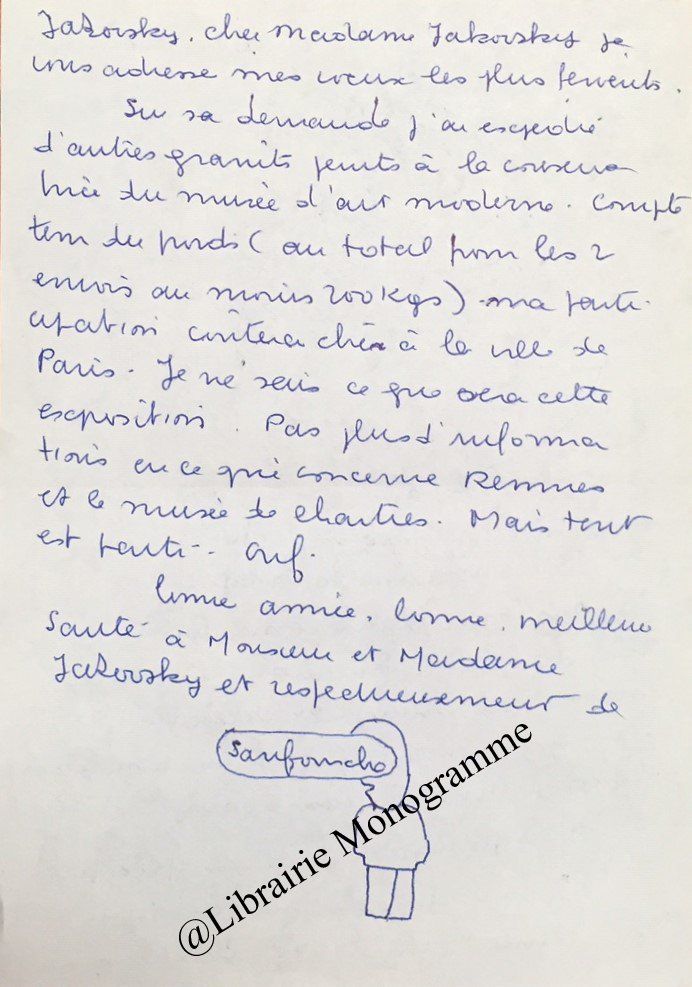 Jakovsky, cher Madame Jakovsky je
vous adresse mes voeux les plus fervents.
Sur sa demande j'ai expédié
d'autres granits peints à la conserva
trice du musée d'art moderne. Compte
tenu du poids (au total pour les 2
envois au moins 200 kgs) ma parti-
cipation coûtera cher à la ville de
Paris. Je ne sais ce que sera cette
exposition. Pas plus d'informa
tions en ce qui concerne Rennes
et le musée de Chartres. Mais tout
est parti.. Ouf.
bonne année, bonne, meilleure
santé à Monsieur et Madame
Jakovsky et respectueusement de
Sanfourche
@Librairie Monogramme